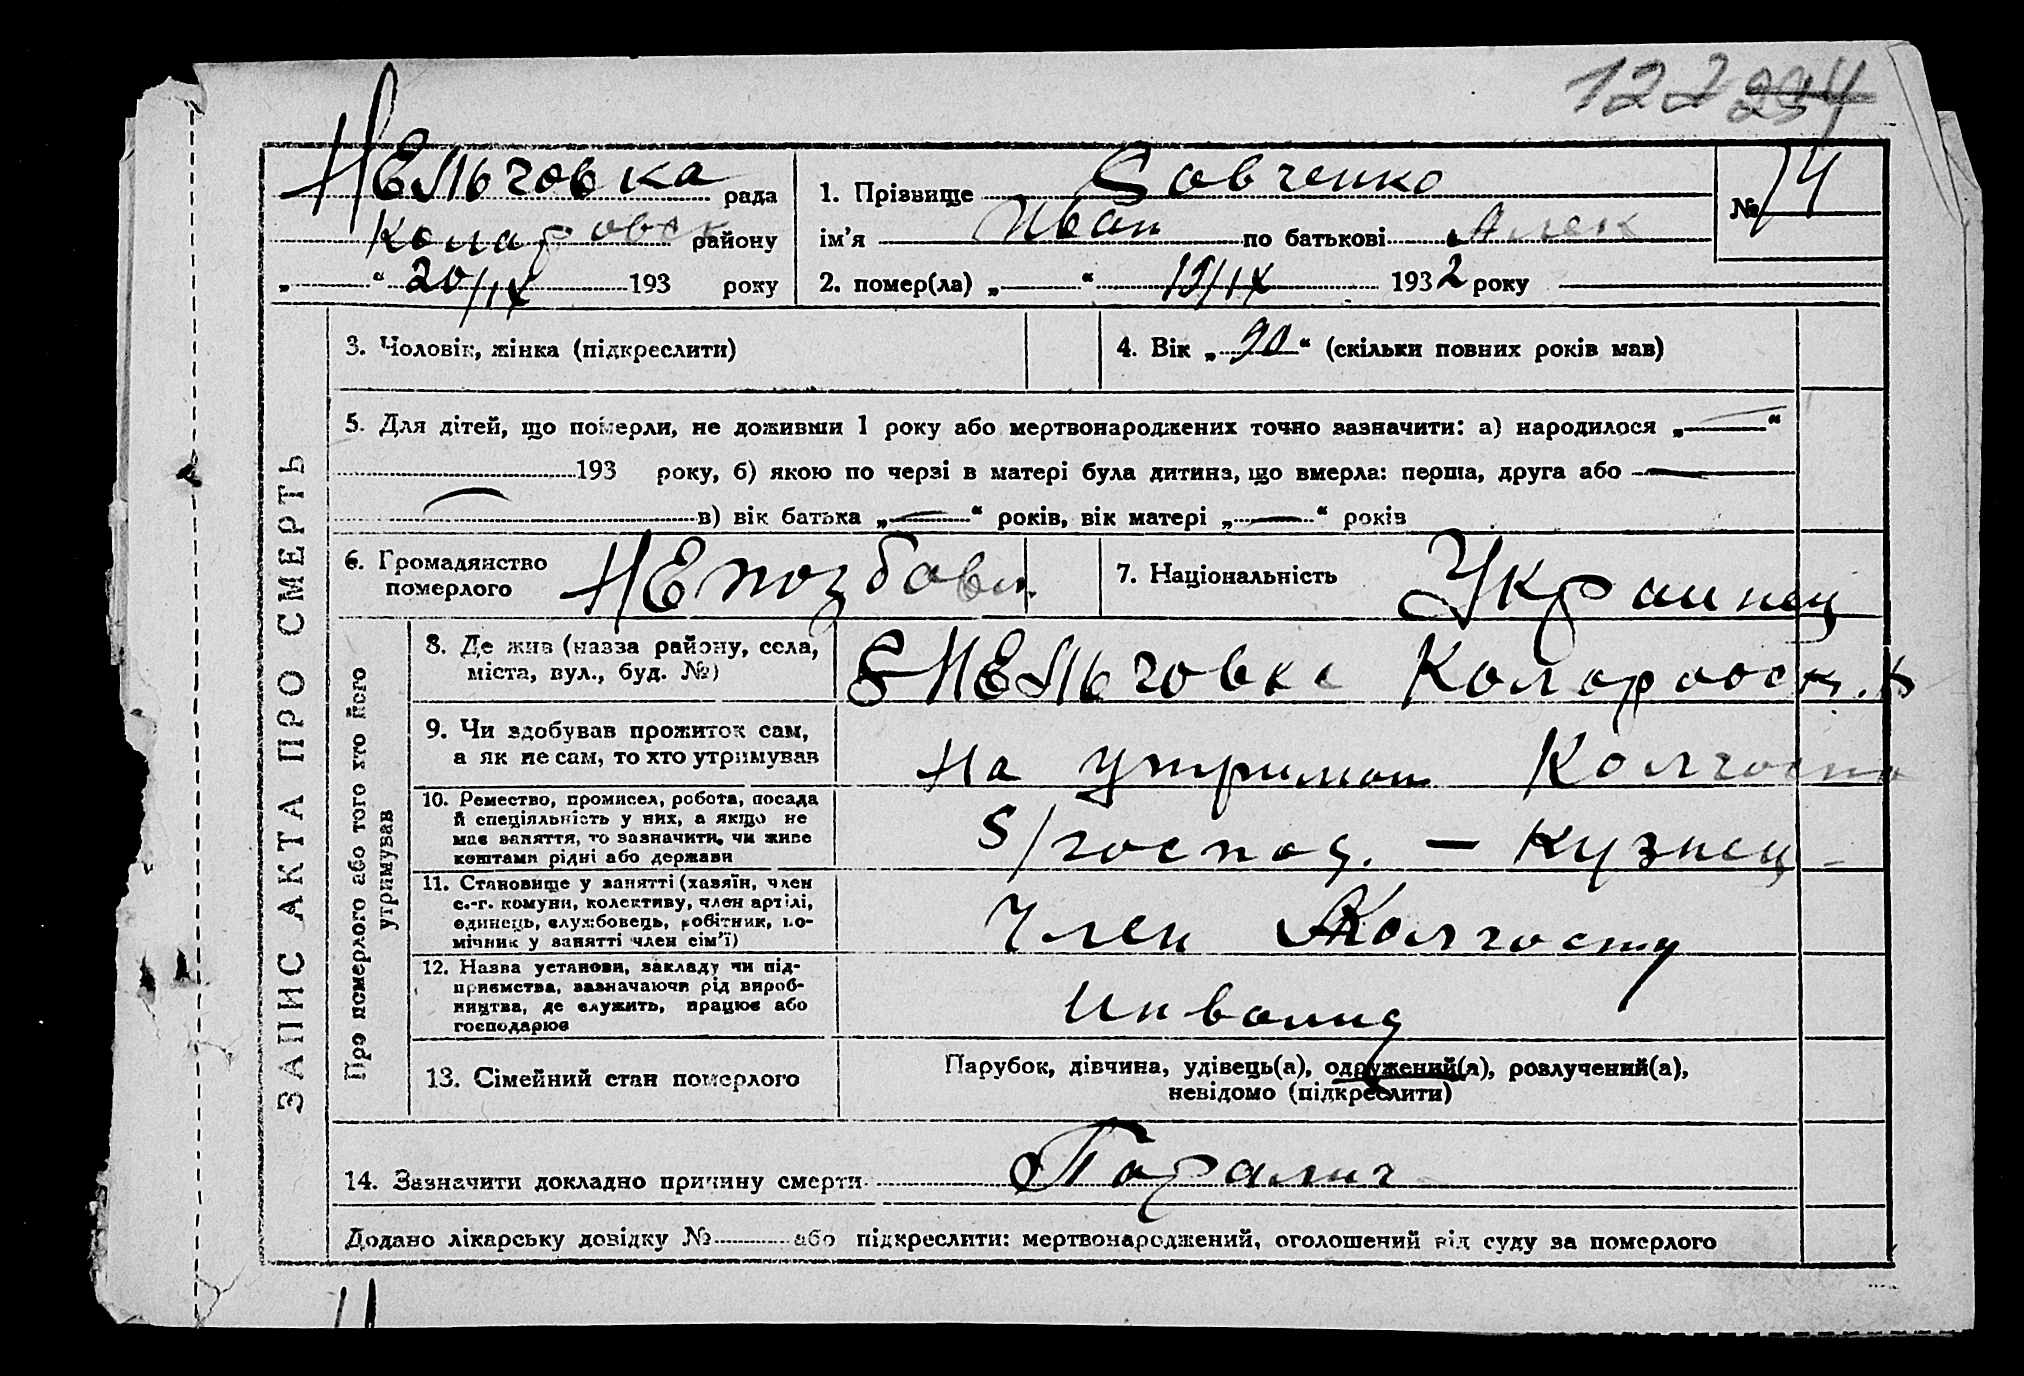 122 234
Нельговка рада
Коларовск району
„ “ 20/IX 193 року
1. Прізвище Савченко
ім'я Иван по батькові Алек
2. помер(ла) „ “ 19/IX 1932 року
№ 74
ЗАПИС АКТА ПРО СМЕРТЬ
3. Чоловік, жінка (підкреслити)
4. Вік „90“ (скільки повних років мав)
5. Для дітей, що померли, не доживши 1 року або мертвонароджених точно зазначити: а) народилося „—“
193 року, б) якою по черзі в матері була дитина, що вмерла: перша, друга або —
— в) вік батька „—“ років, вік матері „—“ років
6. Громадянство
померлого
Непозбавл
7. Національність Украинец
Про померлого або того хто його
утримував
8. Де жив (назва району, села,
міста, вул., буд. №)
Нельговка Коларовск. р
9. Чи здобував прожиток сам,
а як не сам, то хто утримував
на утриман Колгоспа
10. Ремество, промисел, робота, посада
й спеціяльність у них, а якщо не
має заняття, то зазначити, чи живе
коштами рідні або держави
S/господ. — кузнец -
11. Становище у занятті (хазяїн, член
с.-г. комуни, колективу, член артілі,
одинець, службовець, робітник, по-
мічник у занятті член сім'ї)
Член Колгоспу
12. Назва установи, закладу чи під-
приємства, зазначаючи рід вироб-
ництва, де служить, працює або
господарює
Инвалид
13. Сімейний стан померлого
Парубок, дівчина, удівець(а), одружений(а), розлучений(а),
невідомо (підкреслити)
14. Зазначити докладно причину смерти Паралич
Додано лікарську довідку № або підкреслити: мертвонароджений, оголошений від суду за померлого